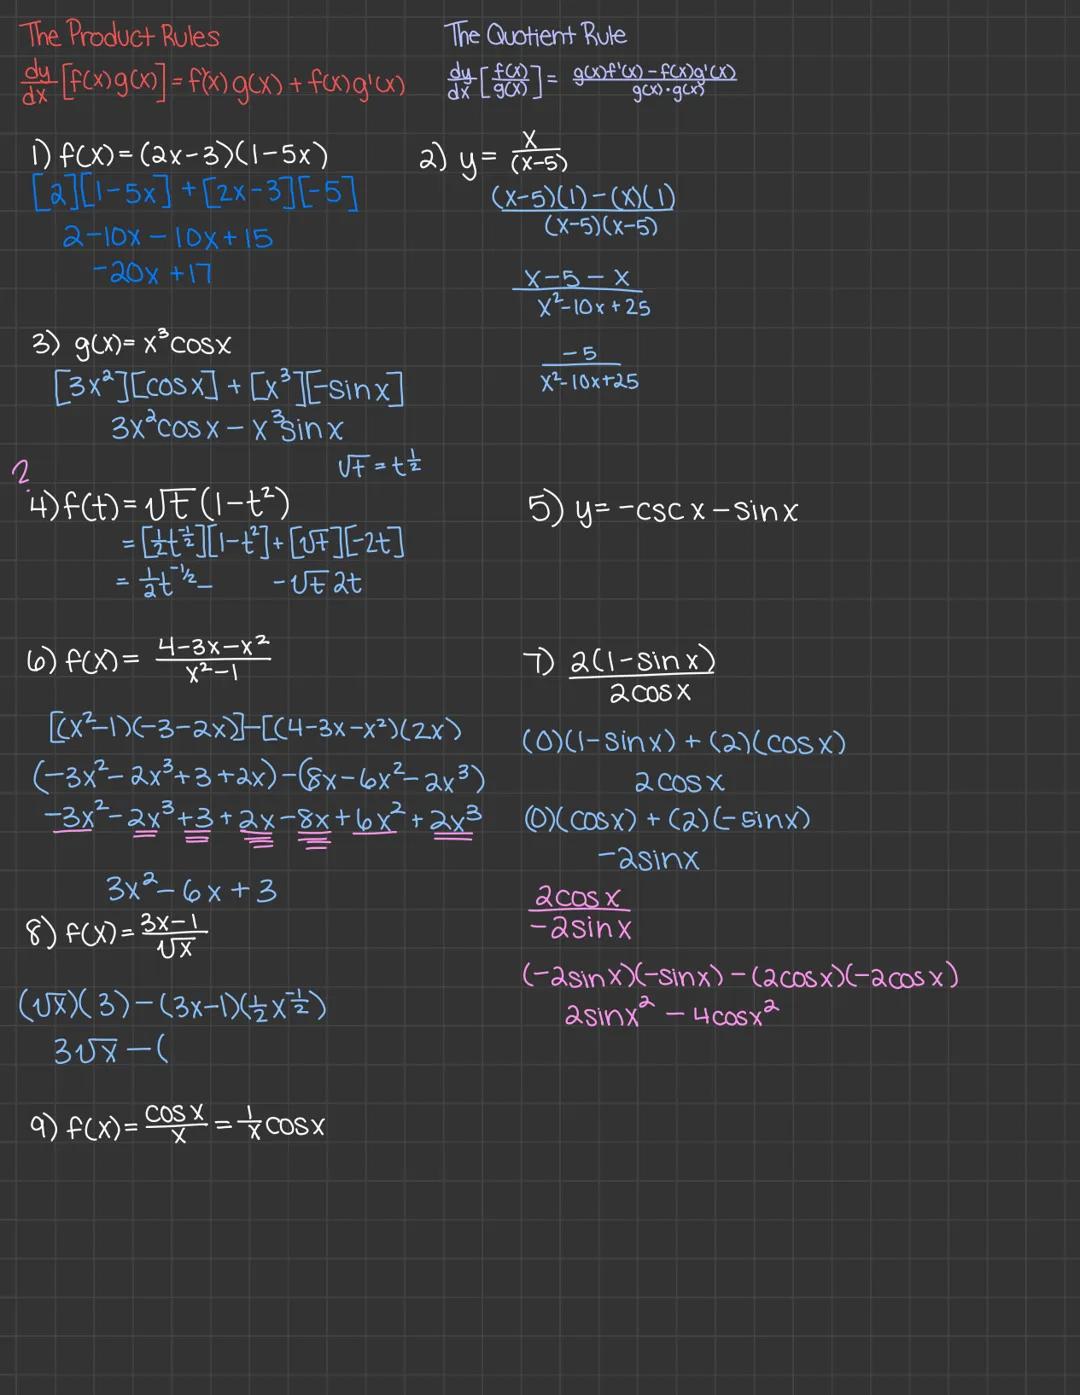 The Product Rules
dy/dx [f(x)g(x)] = f'(x)g(x) + f(x)g'(x)
The Quotient Rule
dy/dx [f(x)/g(x)] = g(x)f'(x) - f(x)g'(x) / g(x)·g(x)
1) f(x) = (2x-3)(1-5x)
[2][1-5x] + [2x-3][-5]
2-10x-10x+15
-20x+17
2) y = x/(x-5)
(x-5)(1)-(x)(1) / (x-5)(x-5)
x-5-x / x²-10x+25
-5 / x²-10x+25
3) g(x) = x³cosx
[3x²][cosx] + [x³][-sinx]
3x²cosx - x³sinx
?
√t = t^½
4) f(t) = √t (1-t²)
= [½t^-½][1-t²] + [√t][-2t]
= ½t^-½ - -√t 2t
5) y = -cscx - sinx
6) f(x) = 4-3x-x² / x²-1
[(x²-1)(-3-2x)]-[(4-3x-x²)(2x)
(-3x²-2x³+3+2x)-(8x-6x²-2x³)
-3x²-2x³+3+2x-8x+6x²+2x³
3x²-6x+3
7) 2(1-sinx) / 2cosx
(0)(1-sinx) + (2)(cosx)
2cosx
(0)(cosx) + (2)(-sinx)
-2sinx
2cosx / -2sinx
(-2sinx)(-sinx) - (2cosx)(-2cosx)
2sinx² - 4cosx²
8) f(x) = 3x-1 / √x
(√x)(3)-(3x-1)(½x^-½)
3√x - (
9) f(x) = cosx/x = 1/x cosx